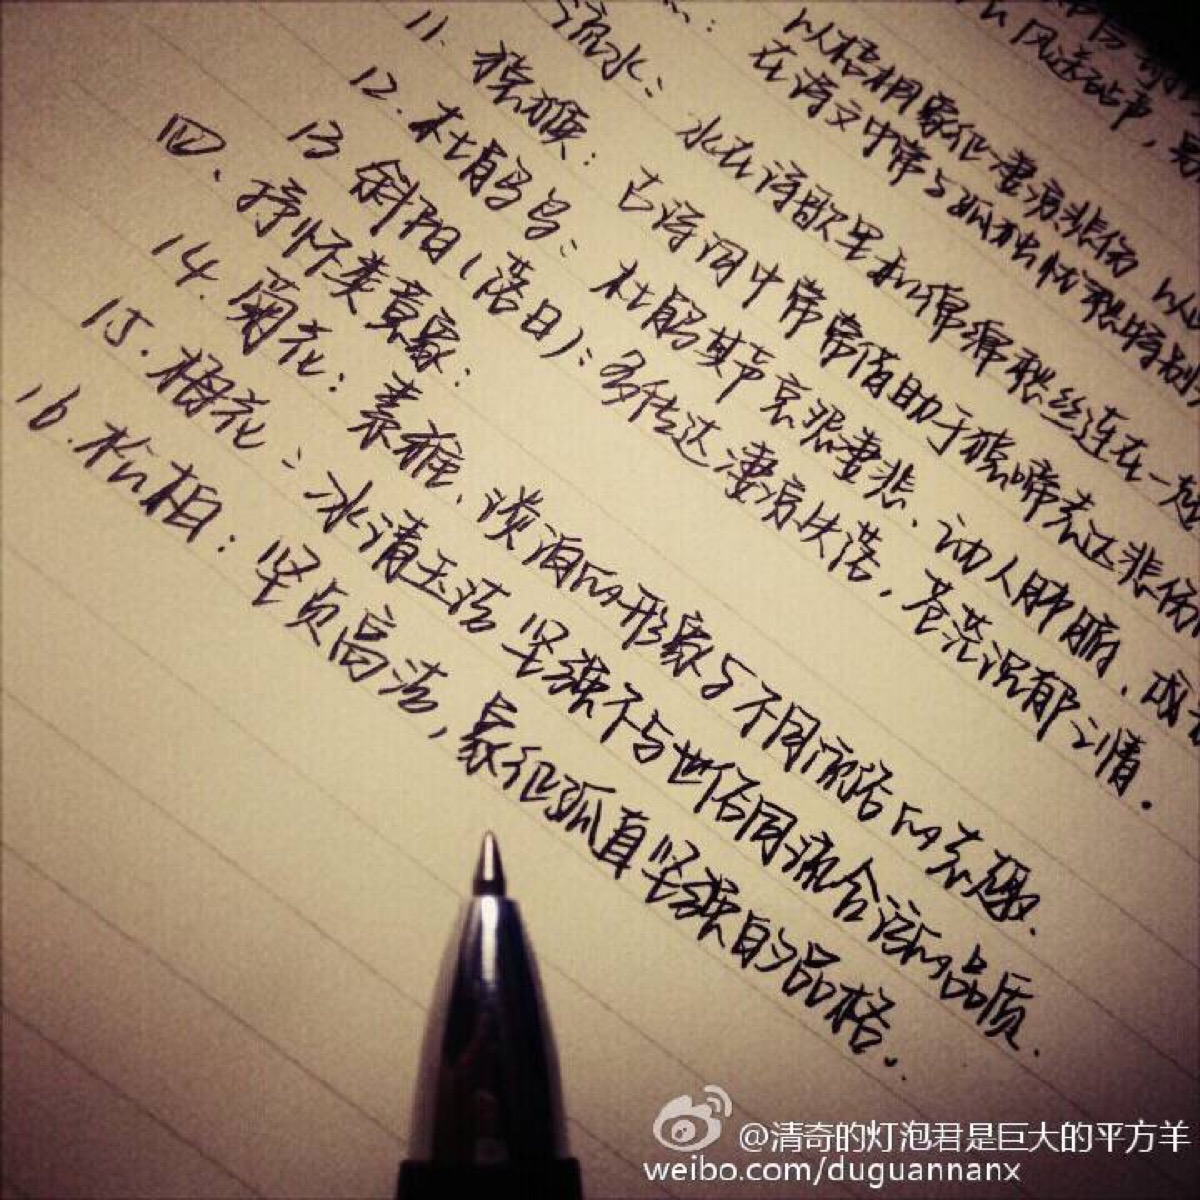 以风送砧声，
以梧桐象征凄凉悲伤
在诗文中常与孤独忧愁特别
流水：水在诗歌里和绵绵愁丝连在一起
11. 猿猴：古诗词中常常借助于猿啼表达悲伤
12. 杜鹃鸟：杜鹃其声哀怨凄悲、动人肺腑，
13 斜阳（落日）：多传达凄凉失落，苍茫沉郁之情。
四、抒怀类意象：
14. 菊花：素雅、淡泊的形象与不同流俗的志趣.
15. 梅花：冰清玉洁 坚强不与世俗同流合污的品质.
16. 松柏：坚贞高洁，象征孤直坚强的品格.
@清奇的灯泡君是巨大的平方羊
weibo.com/duguannanx